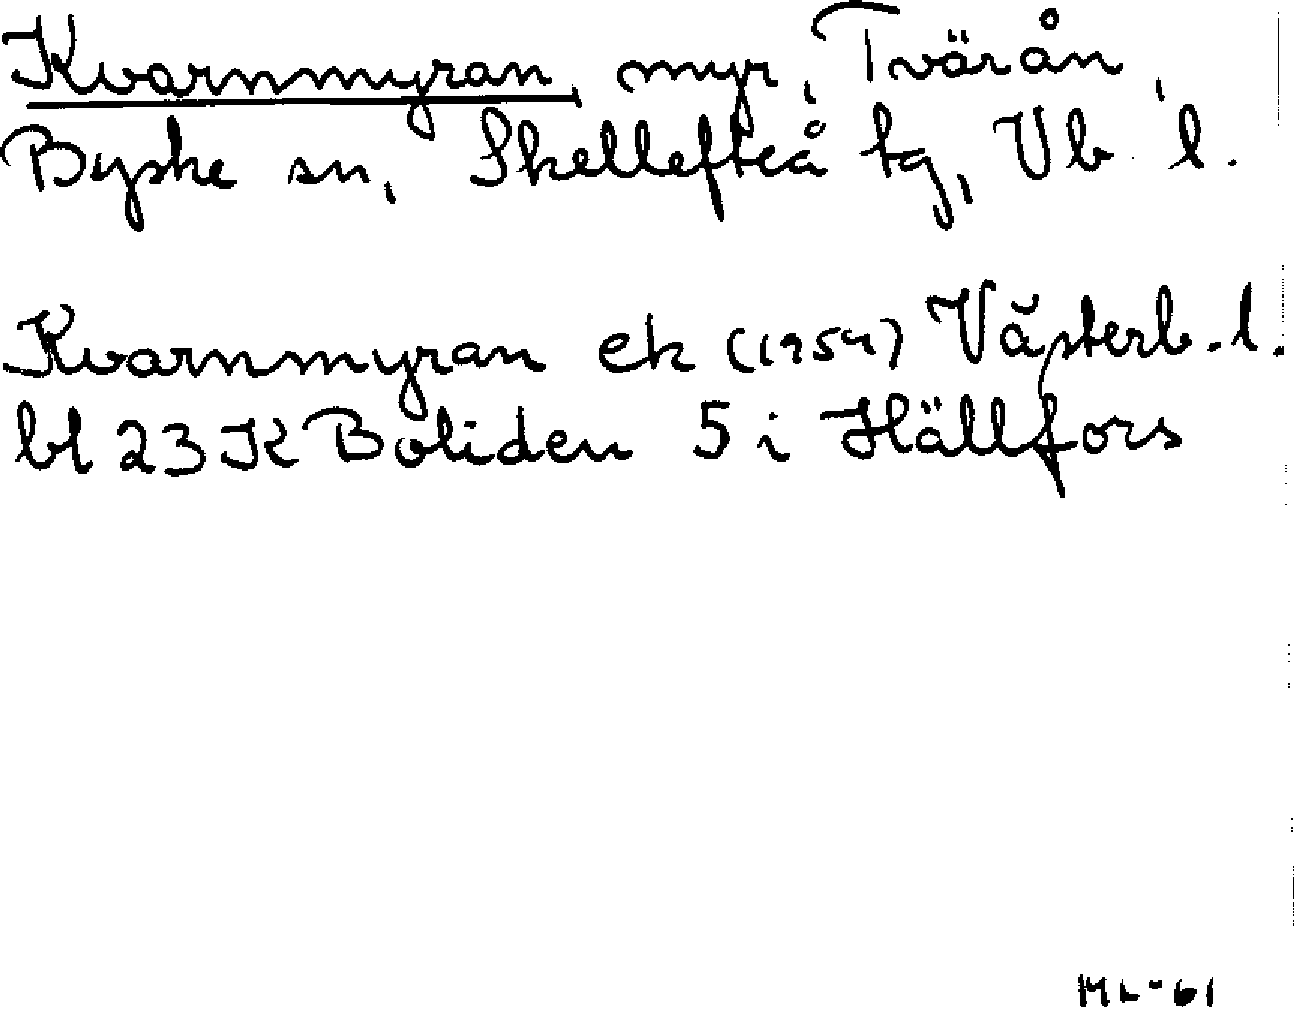 Kvarnmyran, myr, Tvärån,
Byske sn, Skellefteå tg, Vb l.
Kvarnmyran ek (1954) Västerb. l.
bl 23 K Boliden 5 i Hällfors
ML-61